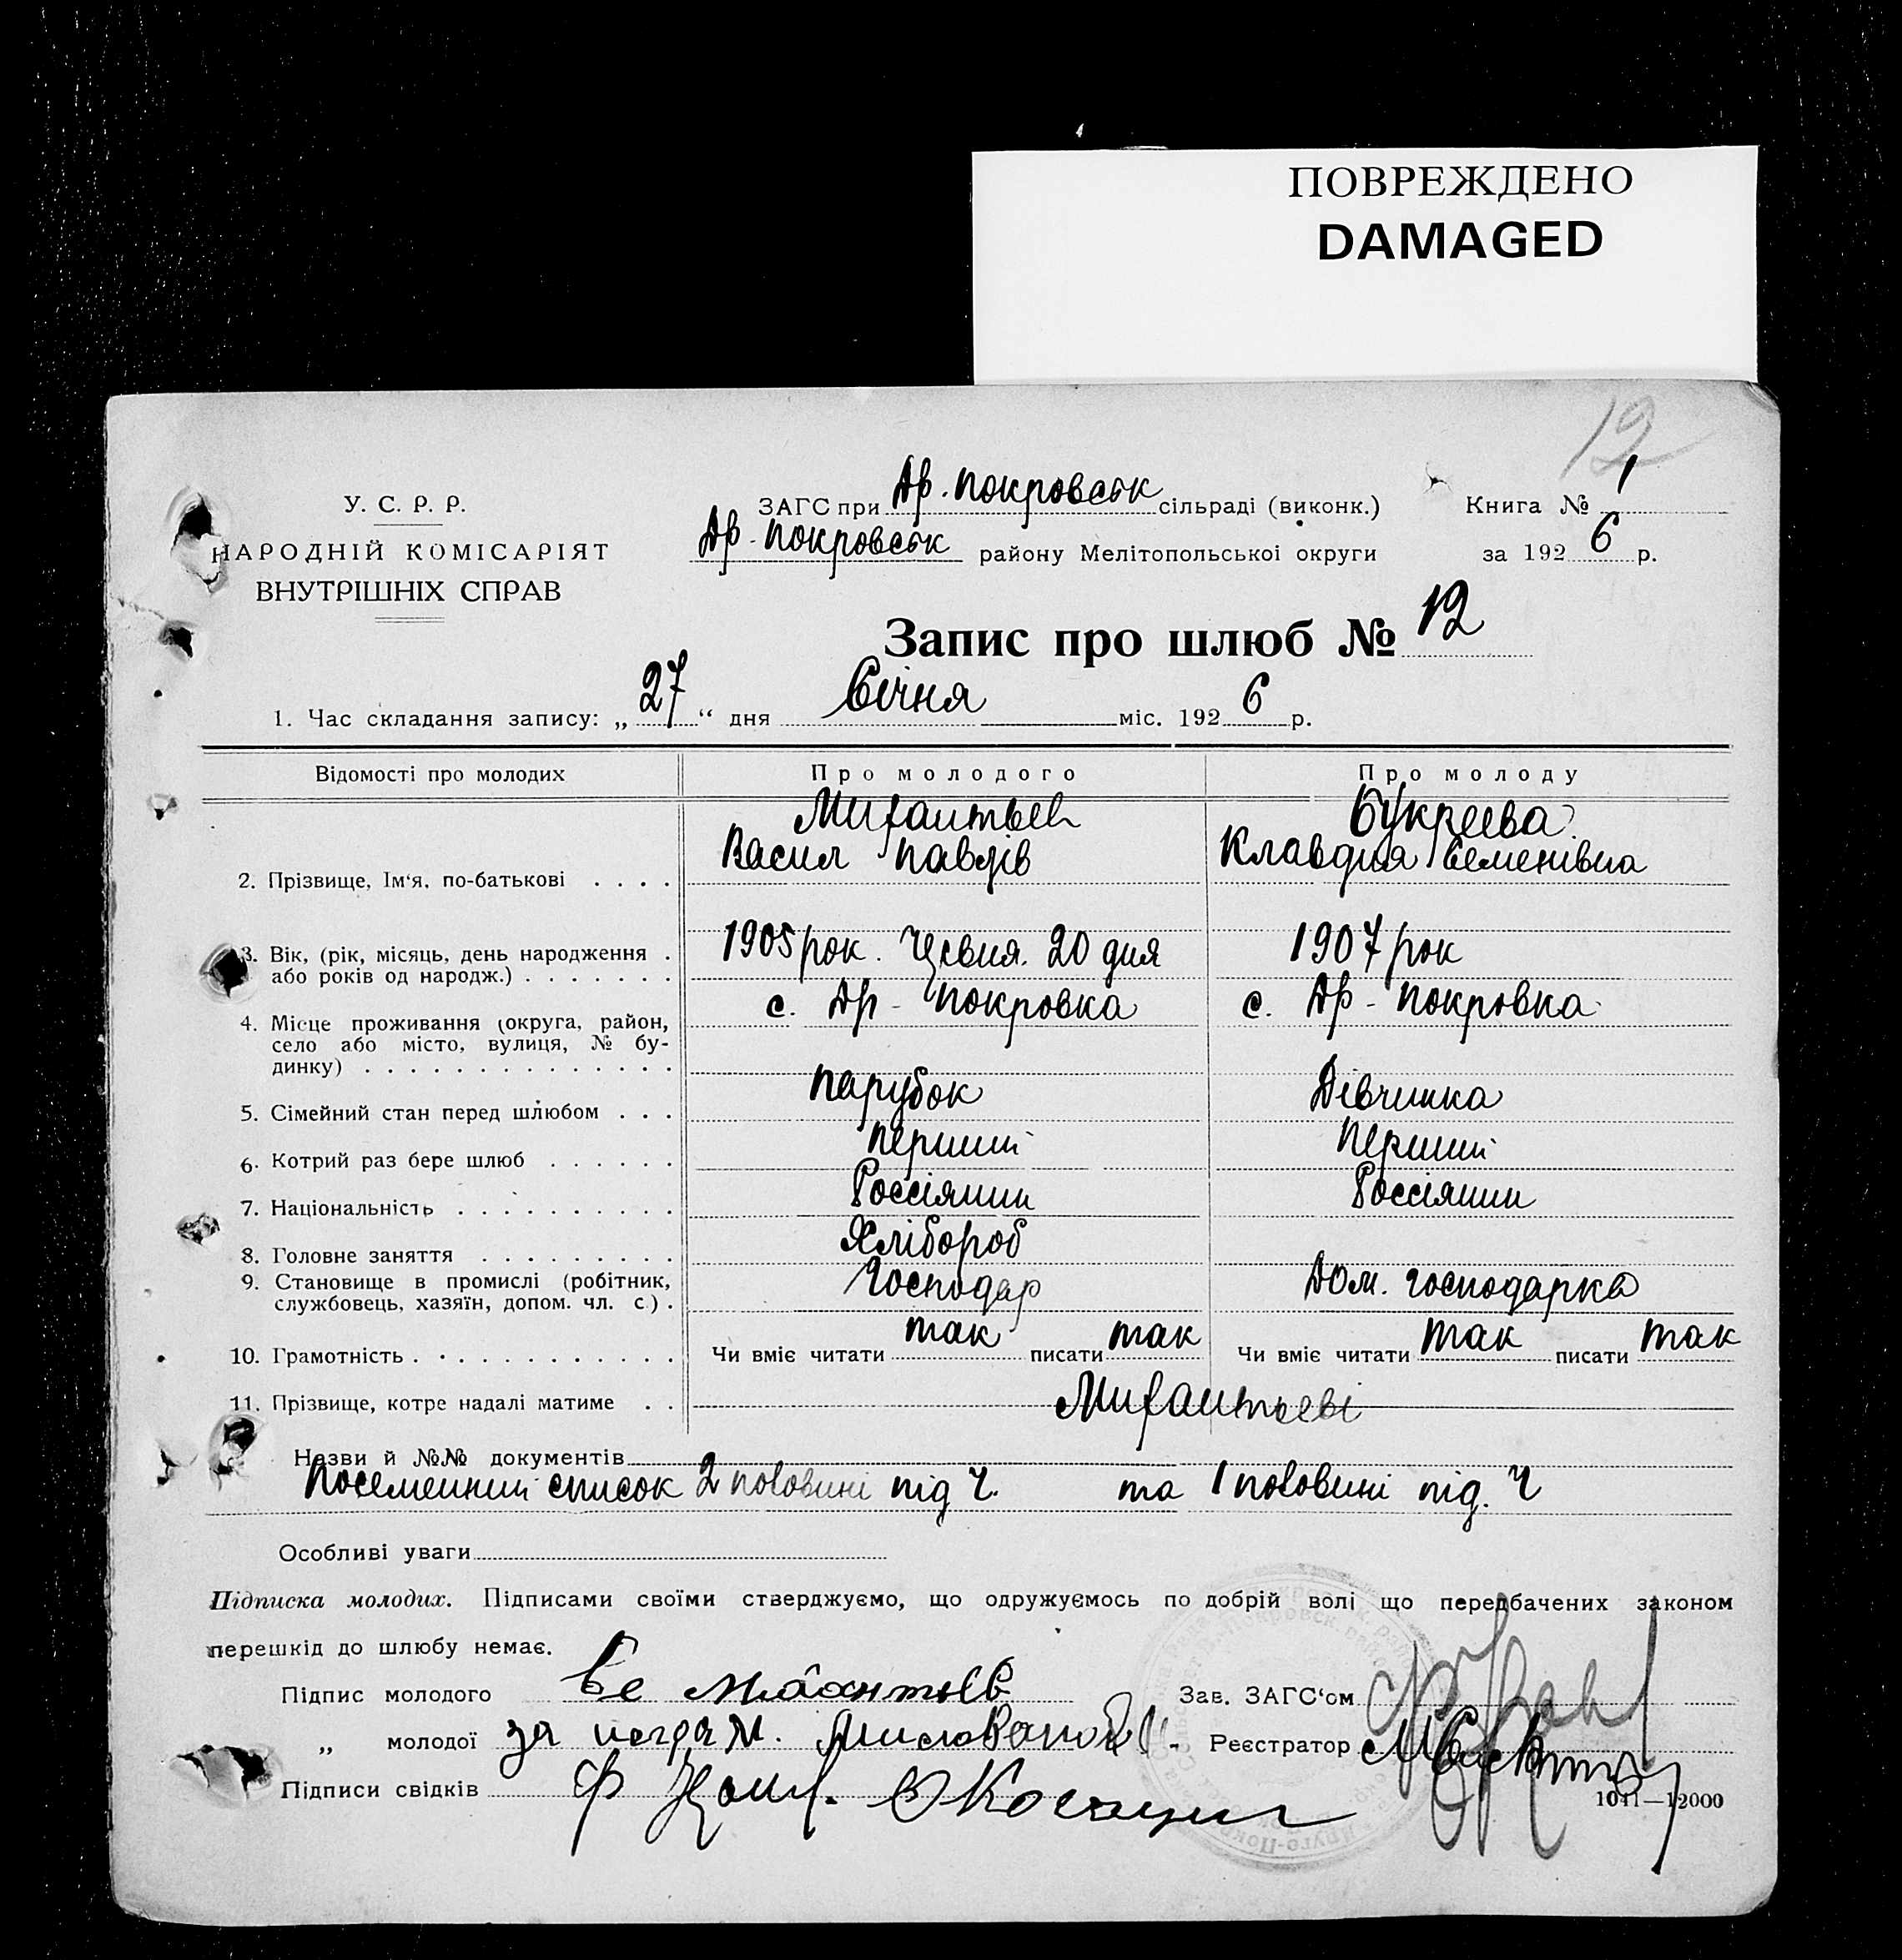 ПОВРЕЖДЕНО
DAMAGED
12
У. С. Р. Р.
НАРОДНІЙ КОМІСАРІЯТ
ВНУТРІШНІХ СПРАВ
ЗАГС при Др. Покровськ сільраді (виконк.)
Др. Покровськ району Мелітопольської округи
Книга № 1
за 1926 р.
Запис про шлюб № 12
1. Час складання запису: „27“ дня Січня міс. 1926 р.
Відомості про молодих Про молодого Про молоду
Букреева
Васил Павлів Клавдия Семенівна
2. Прізвище, Ім‘я, по-батькові . . . .
3. Вік, (рік, місяць, день народження . 1905 рок. 20 дня 1907 рок
або років од народж.) . . . . . . .
с. Др - Покровка с. Др - Покровка
4. Місце проживання (округа, район,
село або місто, вулиця, № бу-
динку) . . . . . . . . . . . . . .
5. Сімейний стан перед шлюбом . . . Парубок Дівчинка
6. Котрий раз бере шлюб . . . . . . Перший Перший
7. Національність . . . . . . . . . . Россіянин Россіянин
8. Головне заняття . . . . . . . . . Хлібороб
9. Становище в промислі (робітник, Господар Дом. господарка
службовець, хазяїн, допом. чл. с.) .
10. Грамотність . . . . . . . . . . . . Чи вміє читати так писати так Чи вміє читати так писати так
11. Прізвище, котре надалі матиме . .
Назви й №№ документів
Посемейний список 2 половині під Ч. та 1 половині під. Ч
Особливі уваги
Підписка молодих. Підписами своїми стверджуємо, що одружуємось по добрій волі що передбачених законом
перешкід до шлюбу немає.
Підпис молодого
Зав. ЗАГС‘ом
„ молодої за
Реєстратор
Підписи свідків
1041—12000